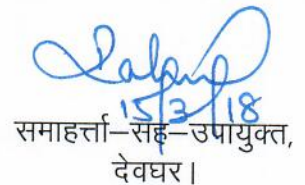 15/3/18
समाहर्त्ता–सह–उपायुक्त,
देवघर।